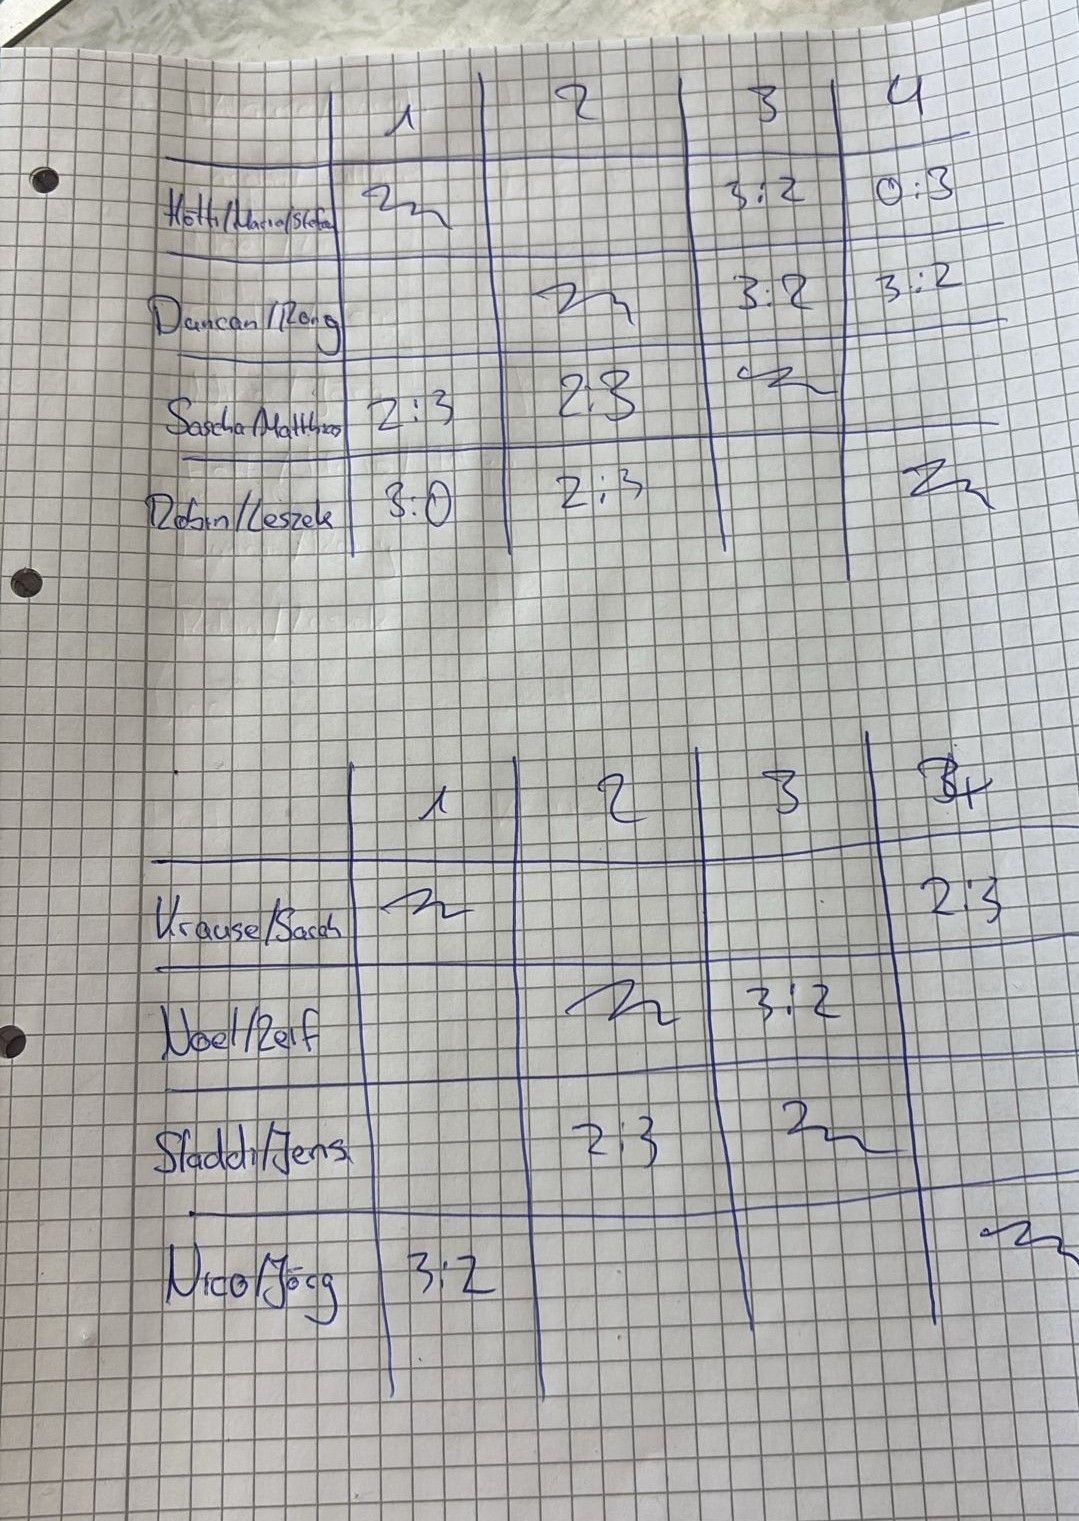 1 2 3 4
Hötti/Maria/Stefan 3:2 0:3
Duncan/Rong 3:2 3:2
Sascha/Matthias 2:3 2:3
Robin/Leszek 3:0 2:3
1 2 3 4
Krause/Sarah 2:3
Noel/Ralf 3:2
Staddi/Jens 2:3
Nico/Jörg 3:2